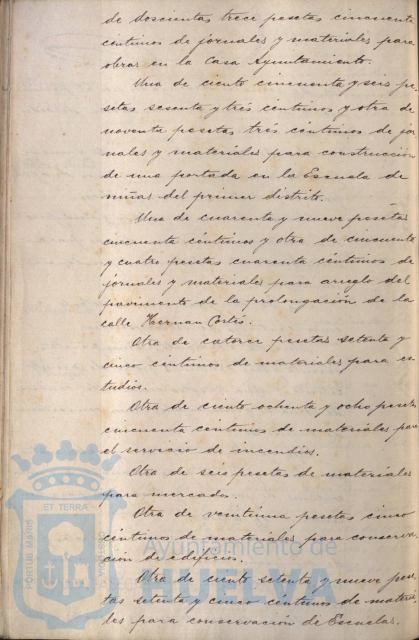 de doscientas trece pesetas cincuenta
céntimos de jornales y materiales para
obras en la Casa Ayuntamiento.
Una de ciento cincuenta y seis pe-
setas sesenta y tres céntimos y otra de
noventa pesetas tres céntimos de jor
nales y materiales para construcción
de una portada en la Escuela de
niñas del primer distrito.
Una de cuarenta y nueve pesetas
cincuenta céntimos y otra de cincuenta
y cuatro pesetas cuarenta céntimos de
jornales y materiales para arreglo del
pavimento de la prolongación de la
calle Hernan Cortés.
Otra de catorce pesetas setenta y
cinco céntimos de materiales para es
tudios.
Otra de ciento ochenta y ocho pesetas
cincuenta céntimos de materiales para
el servicio de incendios.
Otra de seis pesetas de materiales
para mercado.
Otra de veintiuna pesetas cinco
céntimos de materiales para conserva-
ción de edificios.
Otra de ciento setenta y nueve pese
tas setenta y cinco céntimos de materia
les para conservación de Escuelas.
PORTUS MARIS
ET TERRÆ
Ayuntamiento de
HUELVA